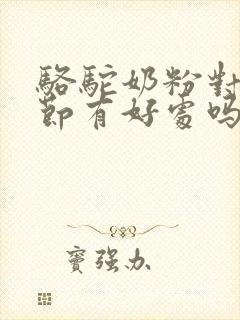 駱駝奶粉對
節有好處嗎
竇強办